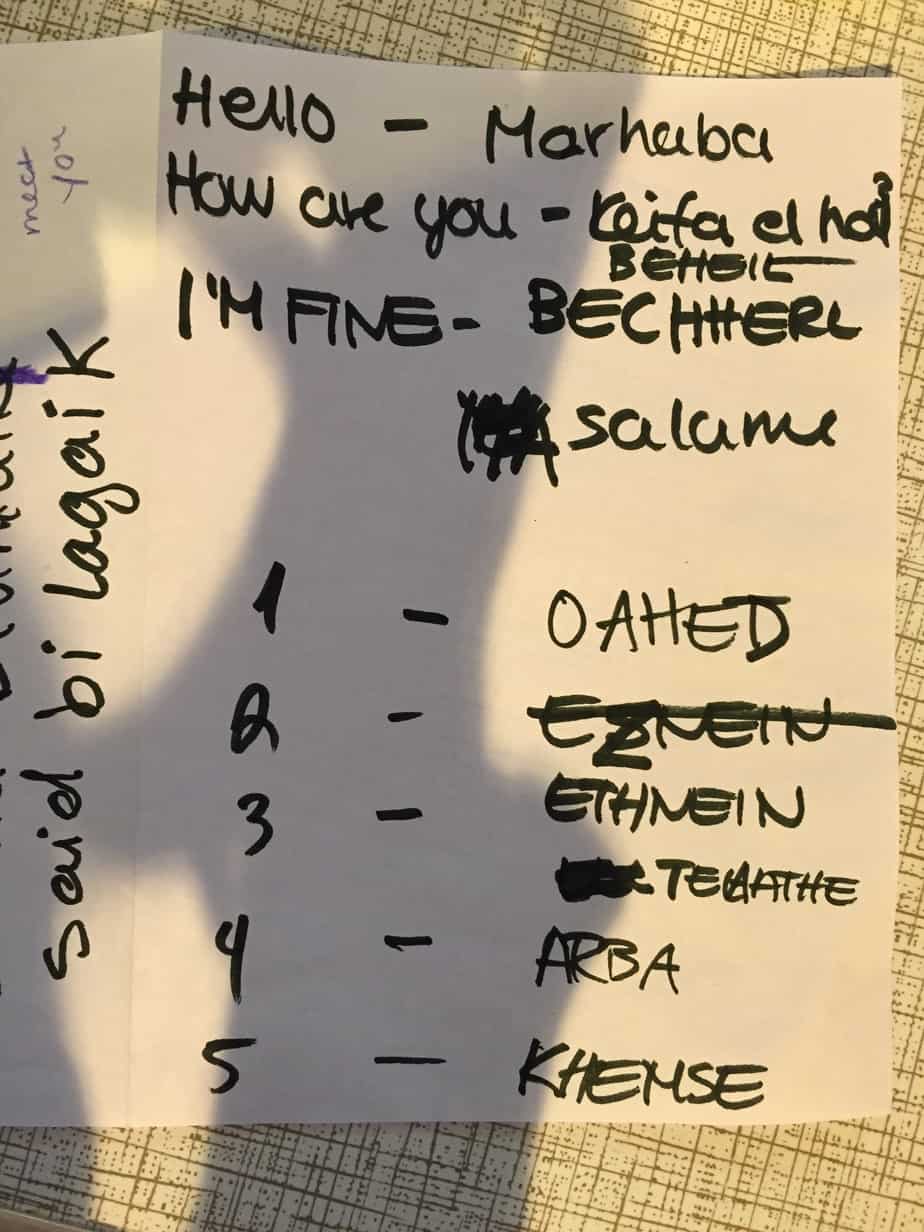 Hello - Marhaba
How are you - keifa el hal?
BEHEIL
I'M FINE - BECHHERL
salame
1 - OAHED
2 - EZNEIN
ETHNEIN
3 - TELATHE
4 - ARBA
5 - KHEMSE
meet
you
said bi lagaik